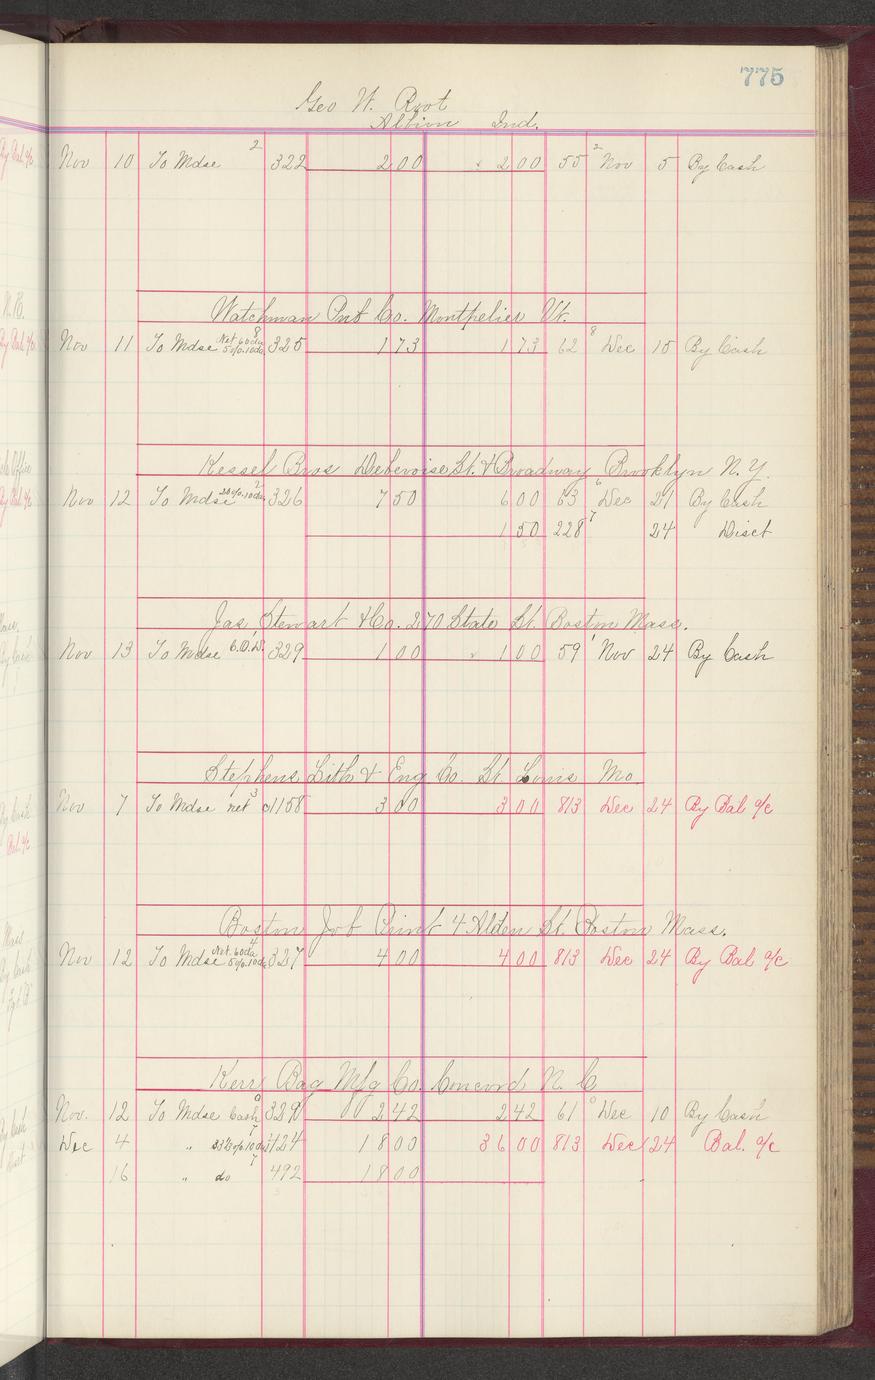 775
Geo W. Root
Albion Ind.
Nov 10 To Mdse 2 322 2 00 2 00 55 2 Nov 5 By Cash
Watchman Pub Co. Montpelier Vt.
Nov 11 To Mdse Net 60da 5%10da 8 325 1 73 1 73 62 8 Dec 15 By Cash
Kessel Bros Debevoise St. & Broadway Brooklyn N.Y.
Nov 12 To Mdse 20%10da 2 326 7 50 6 00 63 6 Dec 21 By Cash
1 50 228 7 24 Disct
Jas Stewart & Co. 270 State St. Boston Mass.
Nov 13 To Mdse C.O.D. 1 329 1 00 1 00 59 1 Nov 24 By Cash
Stephens Lith & Eng Co. St Louis Mo.
Nov 7 To Mdse net 3 c1158 3 00 3 00 813 Dec 24 By Bal a/c
Boston Job Print 4 Alden St. Boston Mass.
Nov 12 To Mdse Net 60da 5%10da 4 327 4 00 4 00 813 Dec 24 By Bal a/c
Kerr Bag Mfg Co. Concord N. C
Nov. 12 To Mdse Cash 8 329 2 42 2 42 61 Dec 10 By Cash
Dec 4 " 33⅓%10da 7 424 18 00 36 00 813 Dec 24 Bal. a/c
16 " do 7 492 18 00